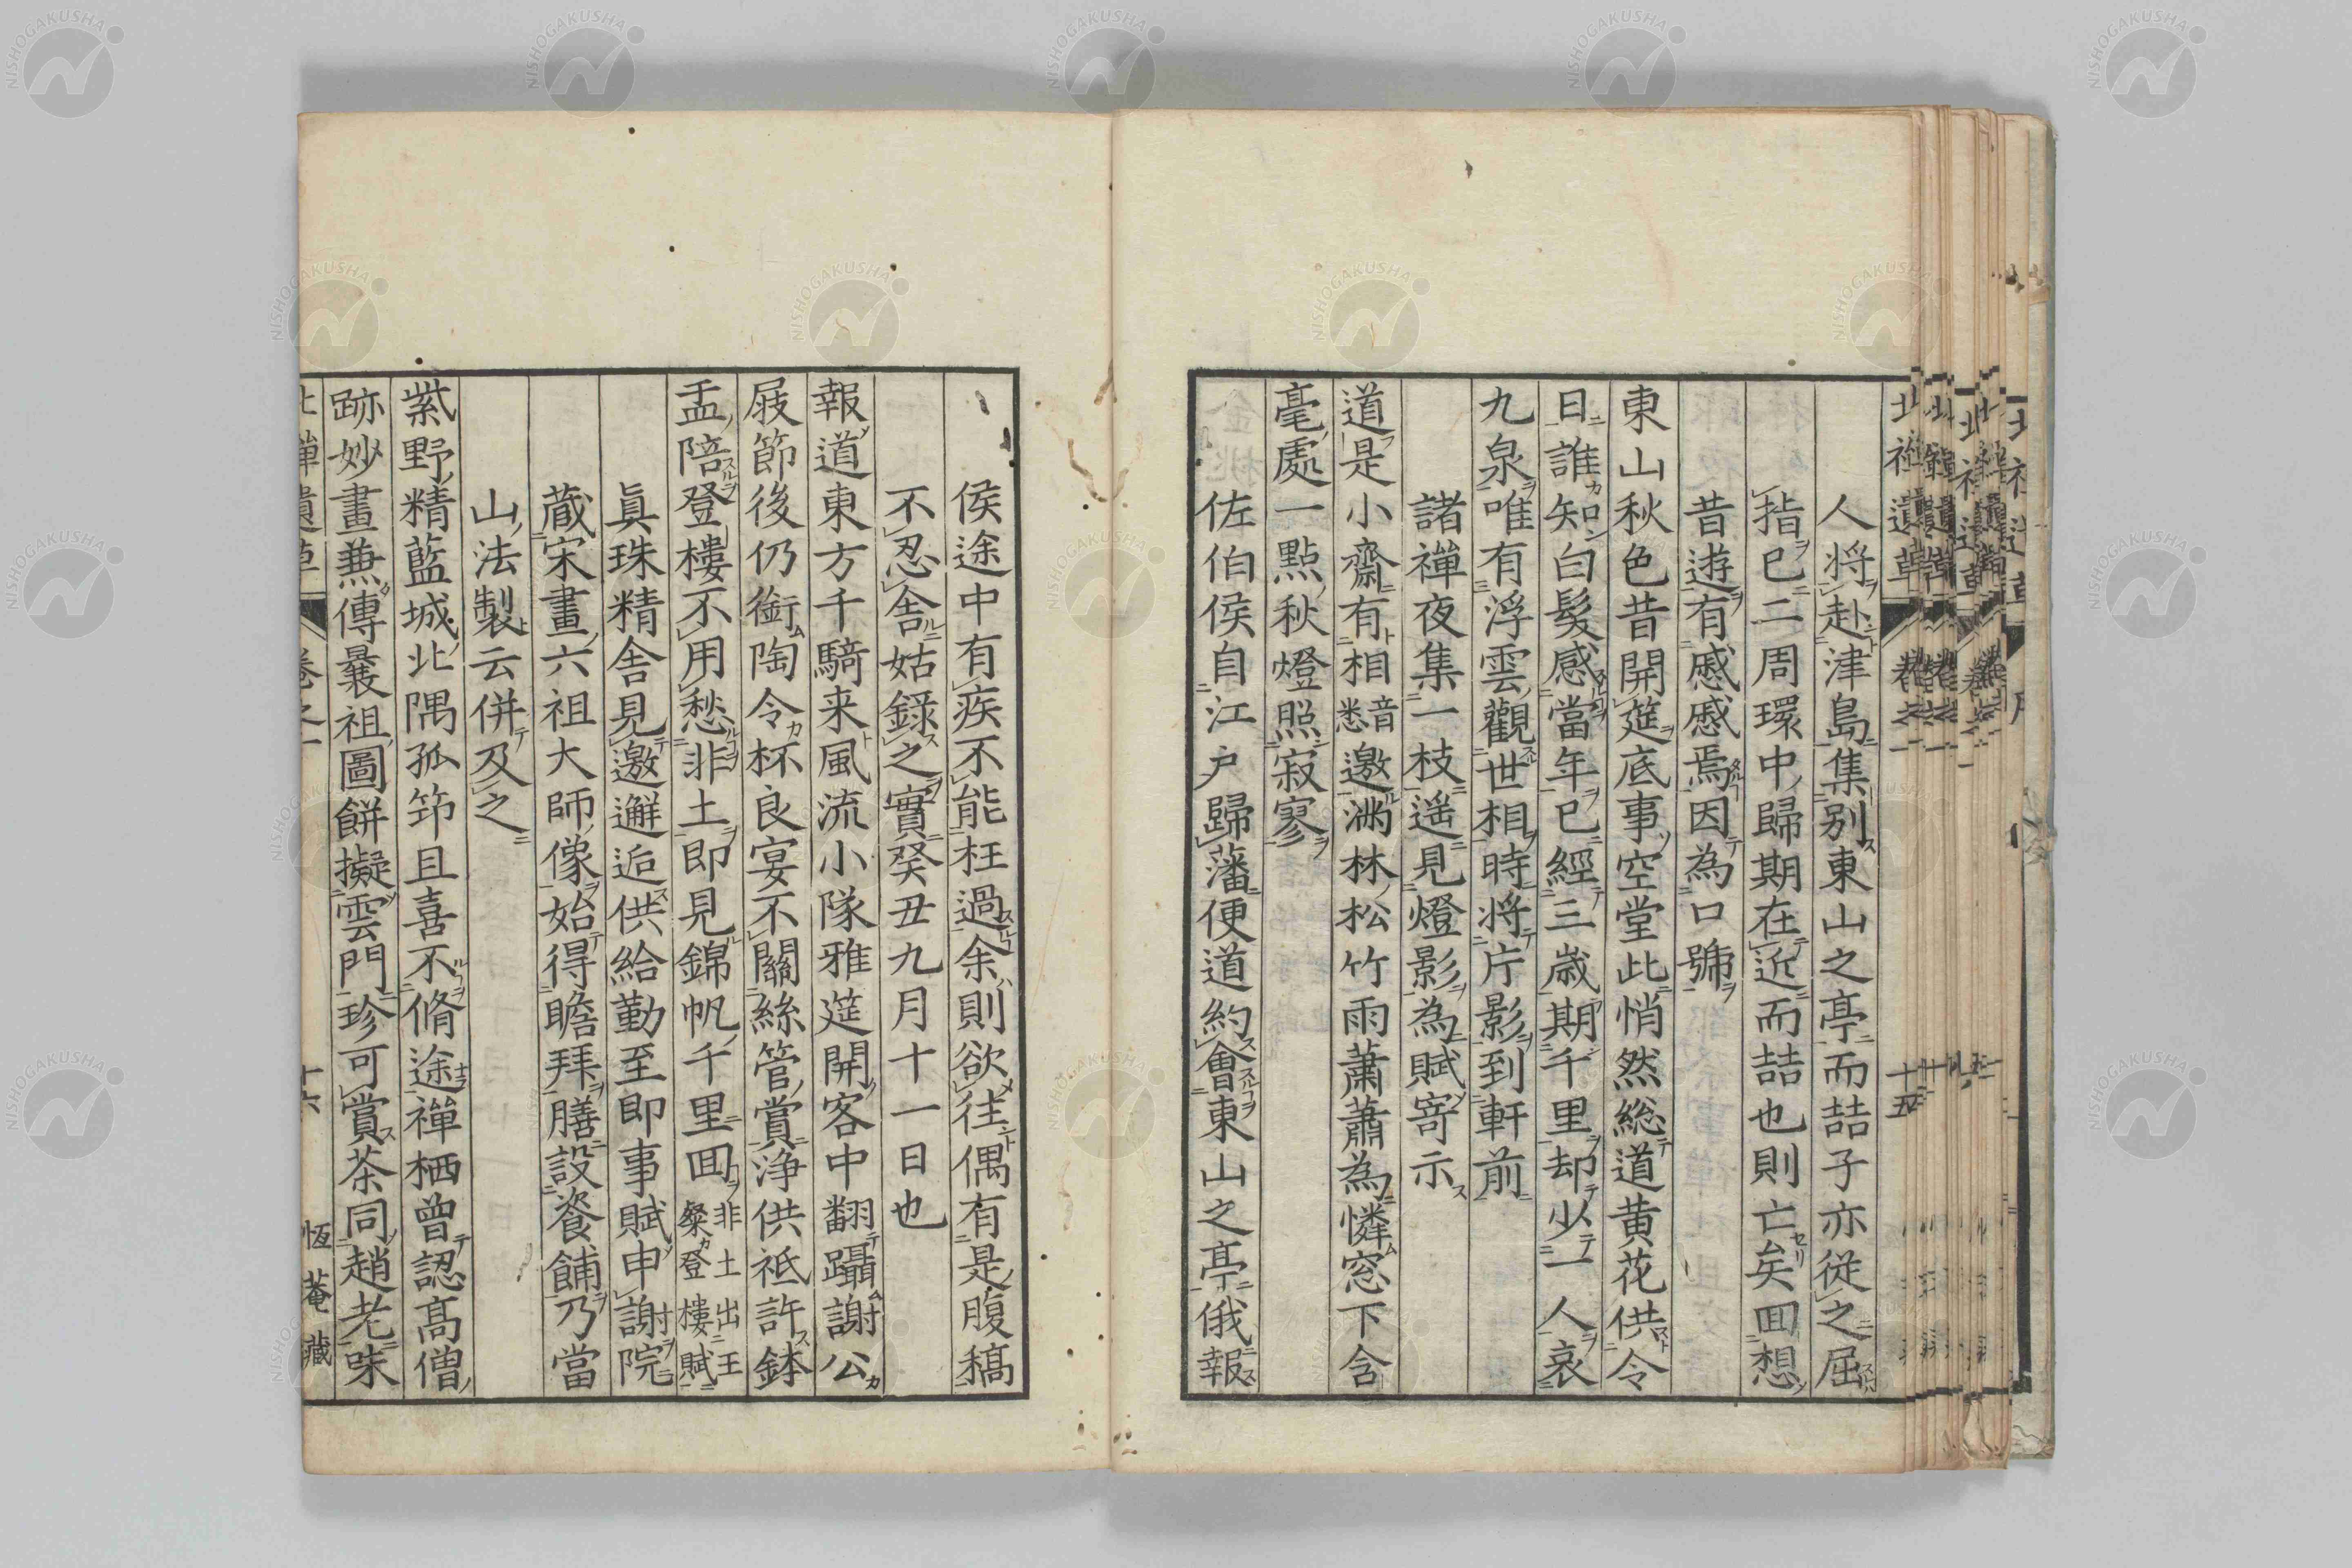 人將赴津島集別東山之亭而喆子亦從之屈
指已二周環中歸期在近而喆也則亡矣囬想
昔遊有慼慼焉因為口號
東山秋色昔開筵底事空堂此悄然総道黄花供令
日誰知白髮感當年已經三歳期千里却少一人哀
九泉唯有浮雲觀世相時將片影到軒前
諸禪夜集一枝遥見燈影為賦寄示
道是小齋有相音悉邀満林松竹雨蕭蕭為憐窓下含
毫處一點秋燈照寂寥
佐伯侯自江戸歸藩便道約會東山之亭俄報
侯途中有疾不能枉過余則欲往偶有是腹稿
不忍舎姑録之實癸丑九月十一日也
報道東方千騎来風流小隊雅筵開客中翻躡謝公
屐節後仍銜陶令杯良宴不關絲管賞浄供祇許鉢
盂陪登樓不用愁非土即見錦帆千里囬非土出王粲登樓賦
眞珠精舎見邀邂逅供給勤至即事賦申謝院
蔵宋畫六祖大師像始得瞻拜膳設餈餔乃當
山法製云併及之
紫野精藍城北隅孤笻且喜不脩途禪栖曾認髙僧
跡妙畫兼傳曩祖圖餅擬雲門珍可賞茶同趙老味
北禪遺草 卷之一 十六 恆菴藏
北禪遺草 卷之一 十五
NISHOGAKUSHA